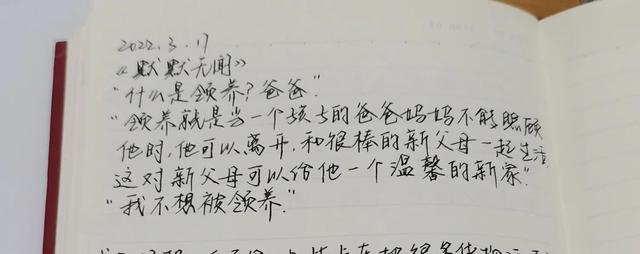 2022.3.17
《默默无闻》
"什么是领养?爸爸."
"领养就是当一个孩子的爸爸妈妈不能照顾
他时,他可以离开,和很棒的新父母一起生活,
这对新父母可以给他一个温馨的新家."
"我不想被领养."